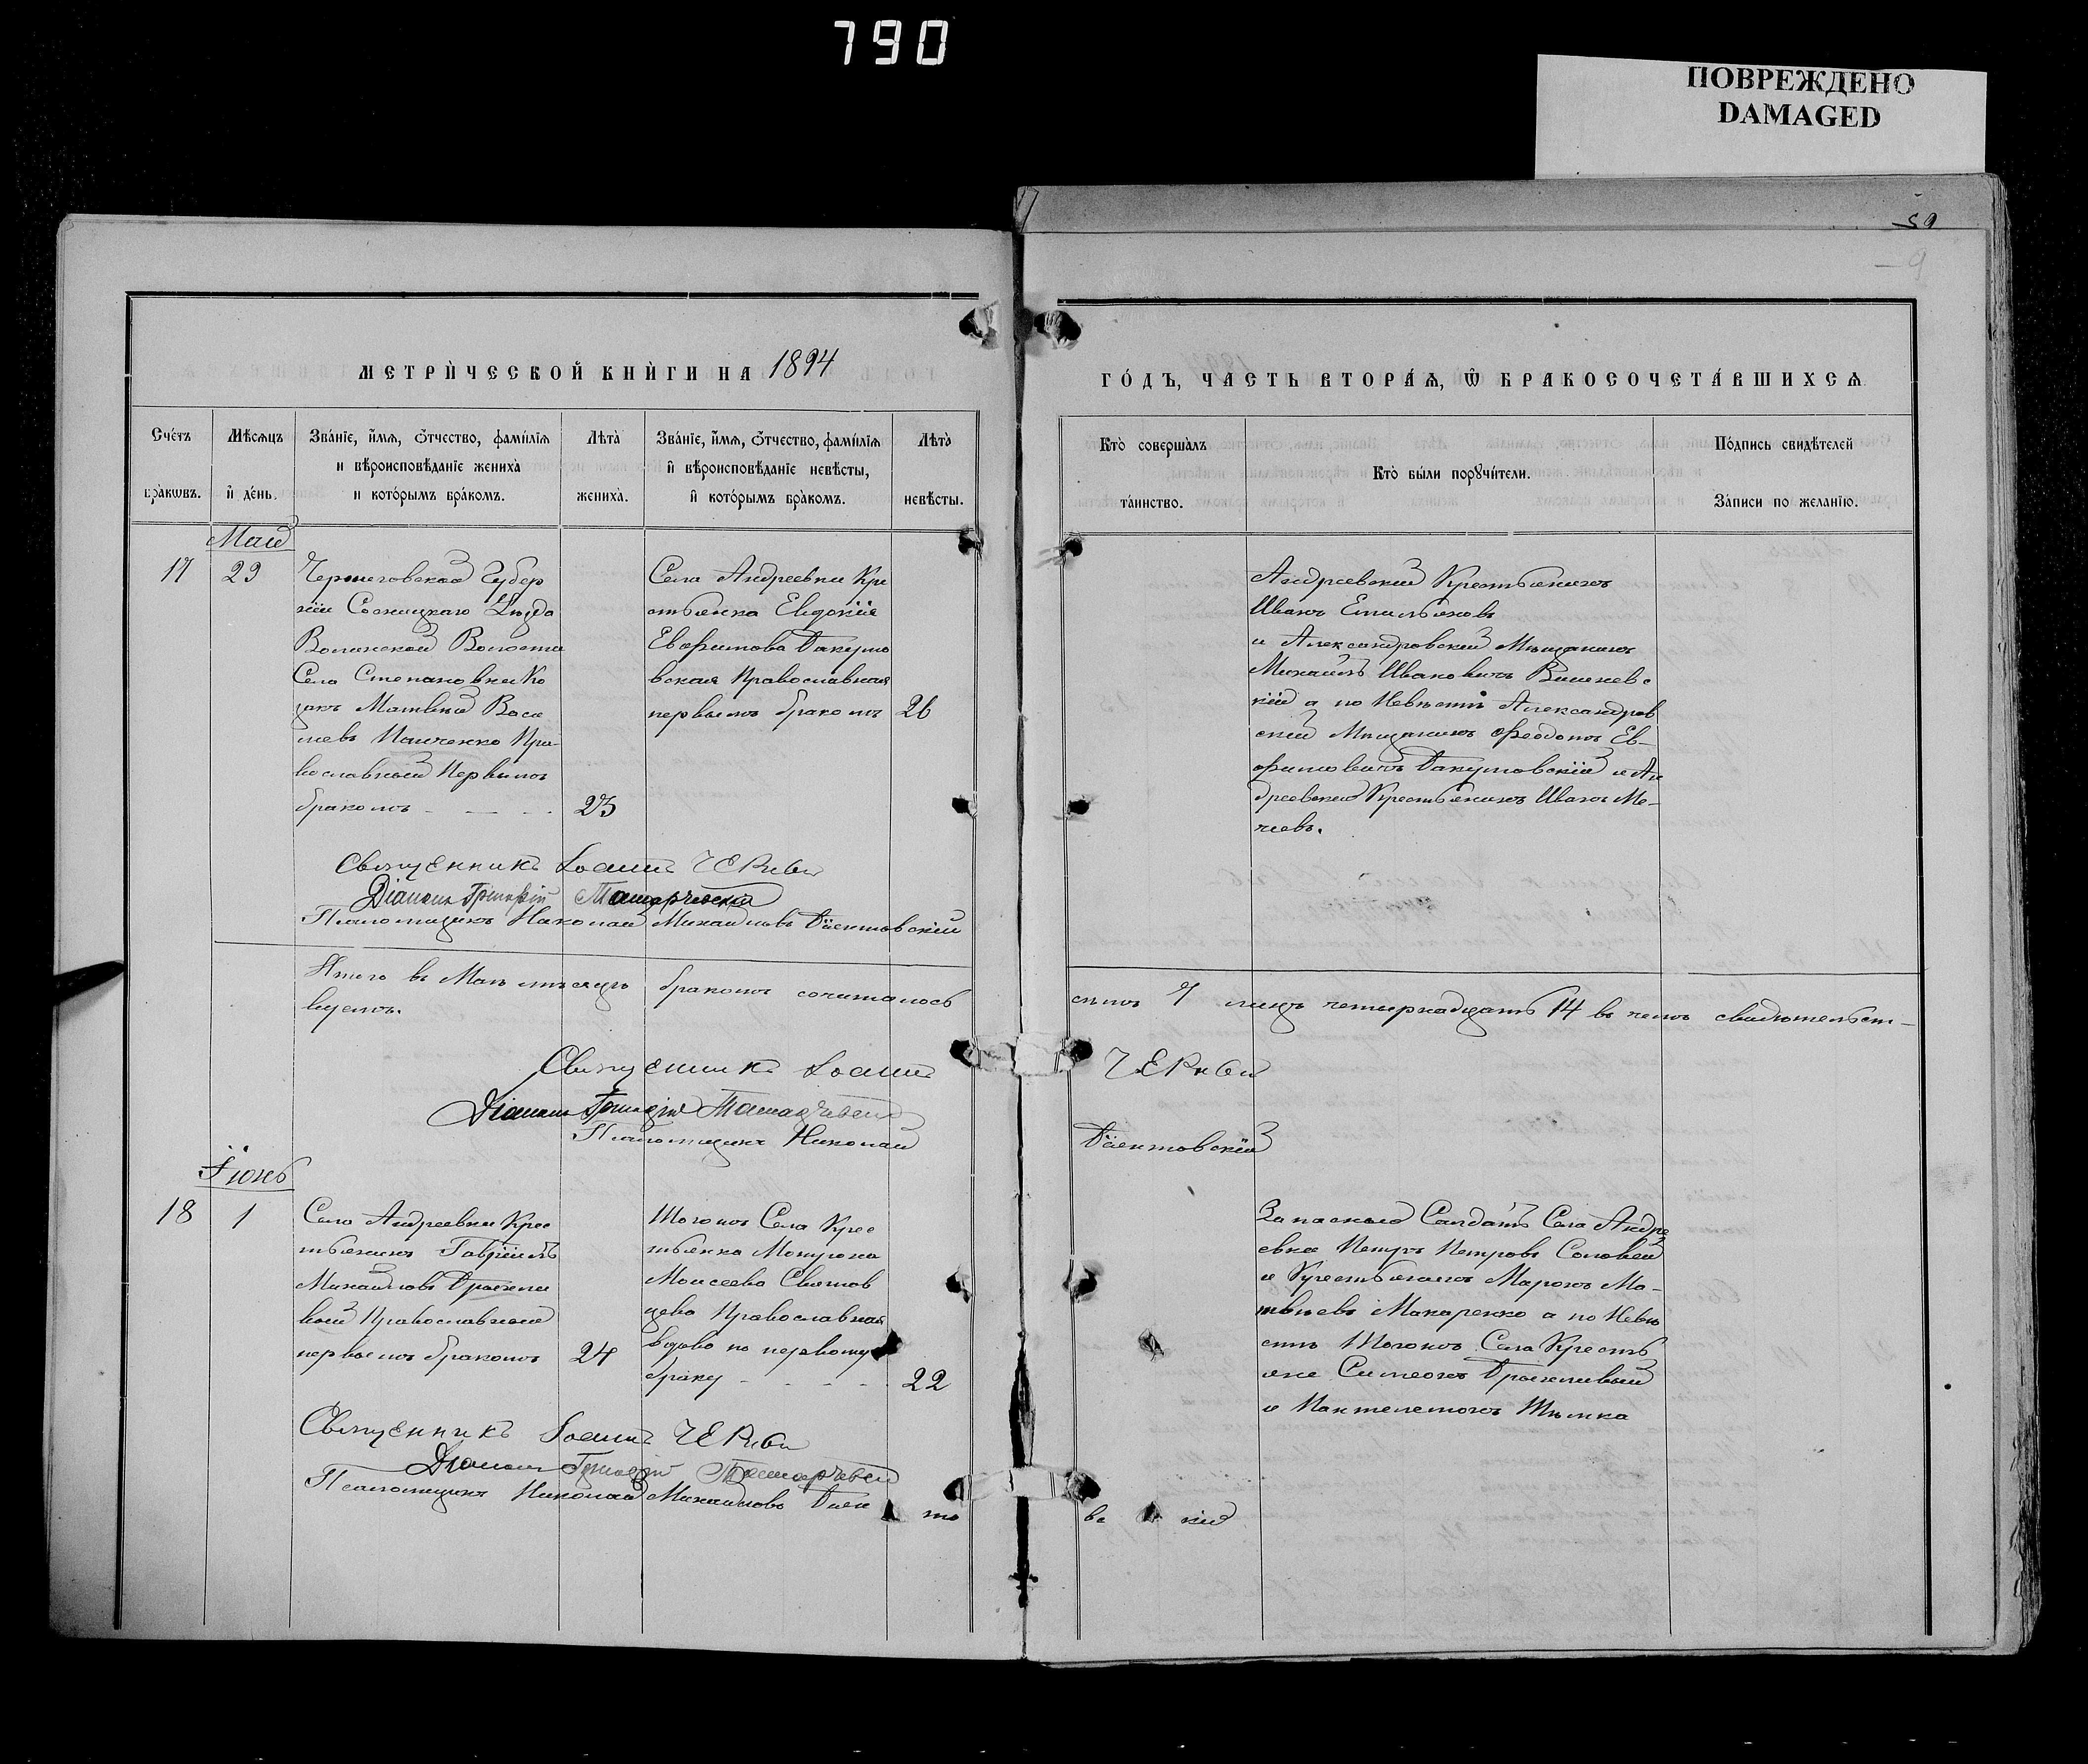 790
ПОВРЕЖДЕНО
DAMAGED
59
9
МЕТРИЧЕСКОЙ КНИГИ НА 1894
ГОДЪ, ЧАСТЬ ВТОРАѦ, Ѿ БРАКОСОЧЕТАВШИХСѦ
Счетъ браковъ.
Мѣсѧцъ и день.
Званіе, имѧ, ѻтчество, фамиліѧ
и вѣроисповѣданіе жениха
и которымъ бракомъ.
Лѣта жениха.
Званіе, имѧ, ѻтчество, фамиліѧ
и вѣроисповѣданіе невѣсты,
и которымъ бракомъ.
Лѣта невѣсты.
Кто совершалъ таинство.
Кто были порꙋчители.
Подпись свидѣтелей
Записи по желанію.
Май
17
29
Черниговской Губер
ніи Сосницкаго Уѣзда
Волости
Села Степановки Ко
закъ Матвѣй Васи
лиевъ Панченко Пра-
вославный Первымъ
бракомъ - - - 23
Села Андреевки Кре
стьянка Евдокія
Евфимова Бакумо
вская Православная
первымъ бракомъ 26
Андреевский Крестьянинъ
Иванъ Емельяновъ
и Александровский Мѣщанинъ
Михаилъ Ивановичъ Вишневс
кій а по Невѣстѣ Александров
ский Мѣщанинъ Феодотъ Ев-
фимовичъ Бакумовскій и Ан
дреевский Крестьянинъ Иванъ Ме-
чевъ.
Священникъ Іоаннъ
Діаконъ
Псаломщикъ Николай Михайловъ
Итого въ Маѣ мѣсяцѣ бракомъ сочиталось
семь 7 лицъ четырнадцать 14 въ чемъ свидѣтельст-
вуемъ.
Священникъ Іоаннъ
Діаконъ
Псаломщикъ Николай
Іюнь
18
1
Села Андреевки Крес
тьянинъ Гавріилъ
Михайловъ Драгли
вый Православный
первымъ бракомъ 24
Тогожъ Села Крес
тьянка
Моисеева
Православная
вдова по первому
браку - - - - 22
Запасный Салдатъ Села Андре
евки Петръ Петровъ Соловей
и Крестьянинъ Маркъ Ма-
твѣевъ Макаренко а по Невѣ
стѣ Тогожъ Села Кресть
яне Симеонъ
и Пантелеймонъ
Священникъ Іоаннъ
Діаконъ
Псаломщикъ Николай Михайловъ